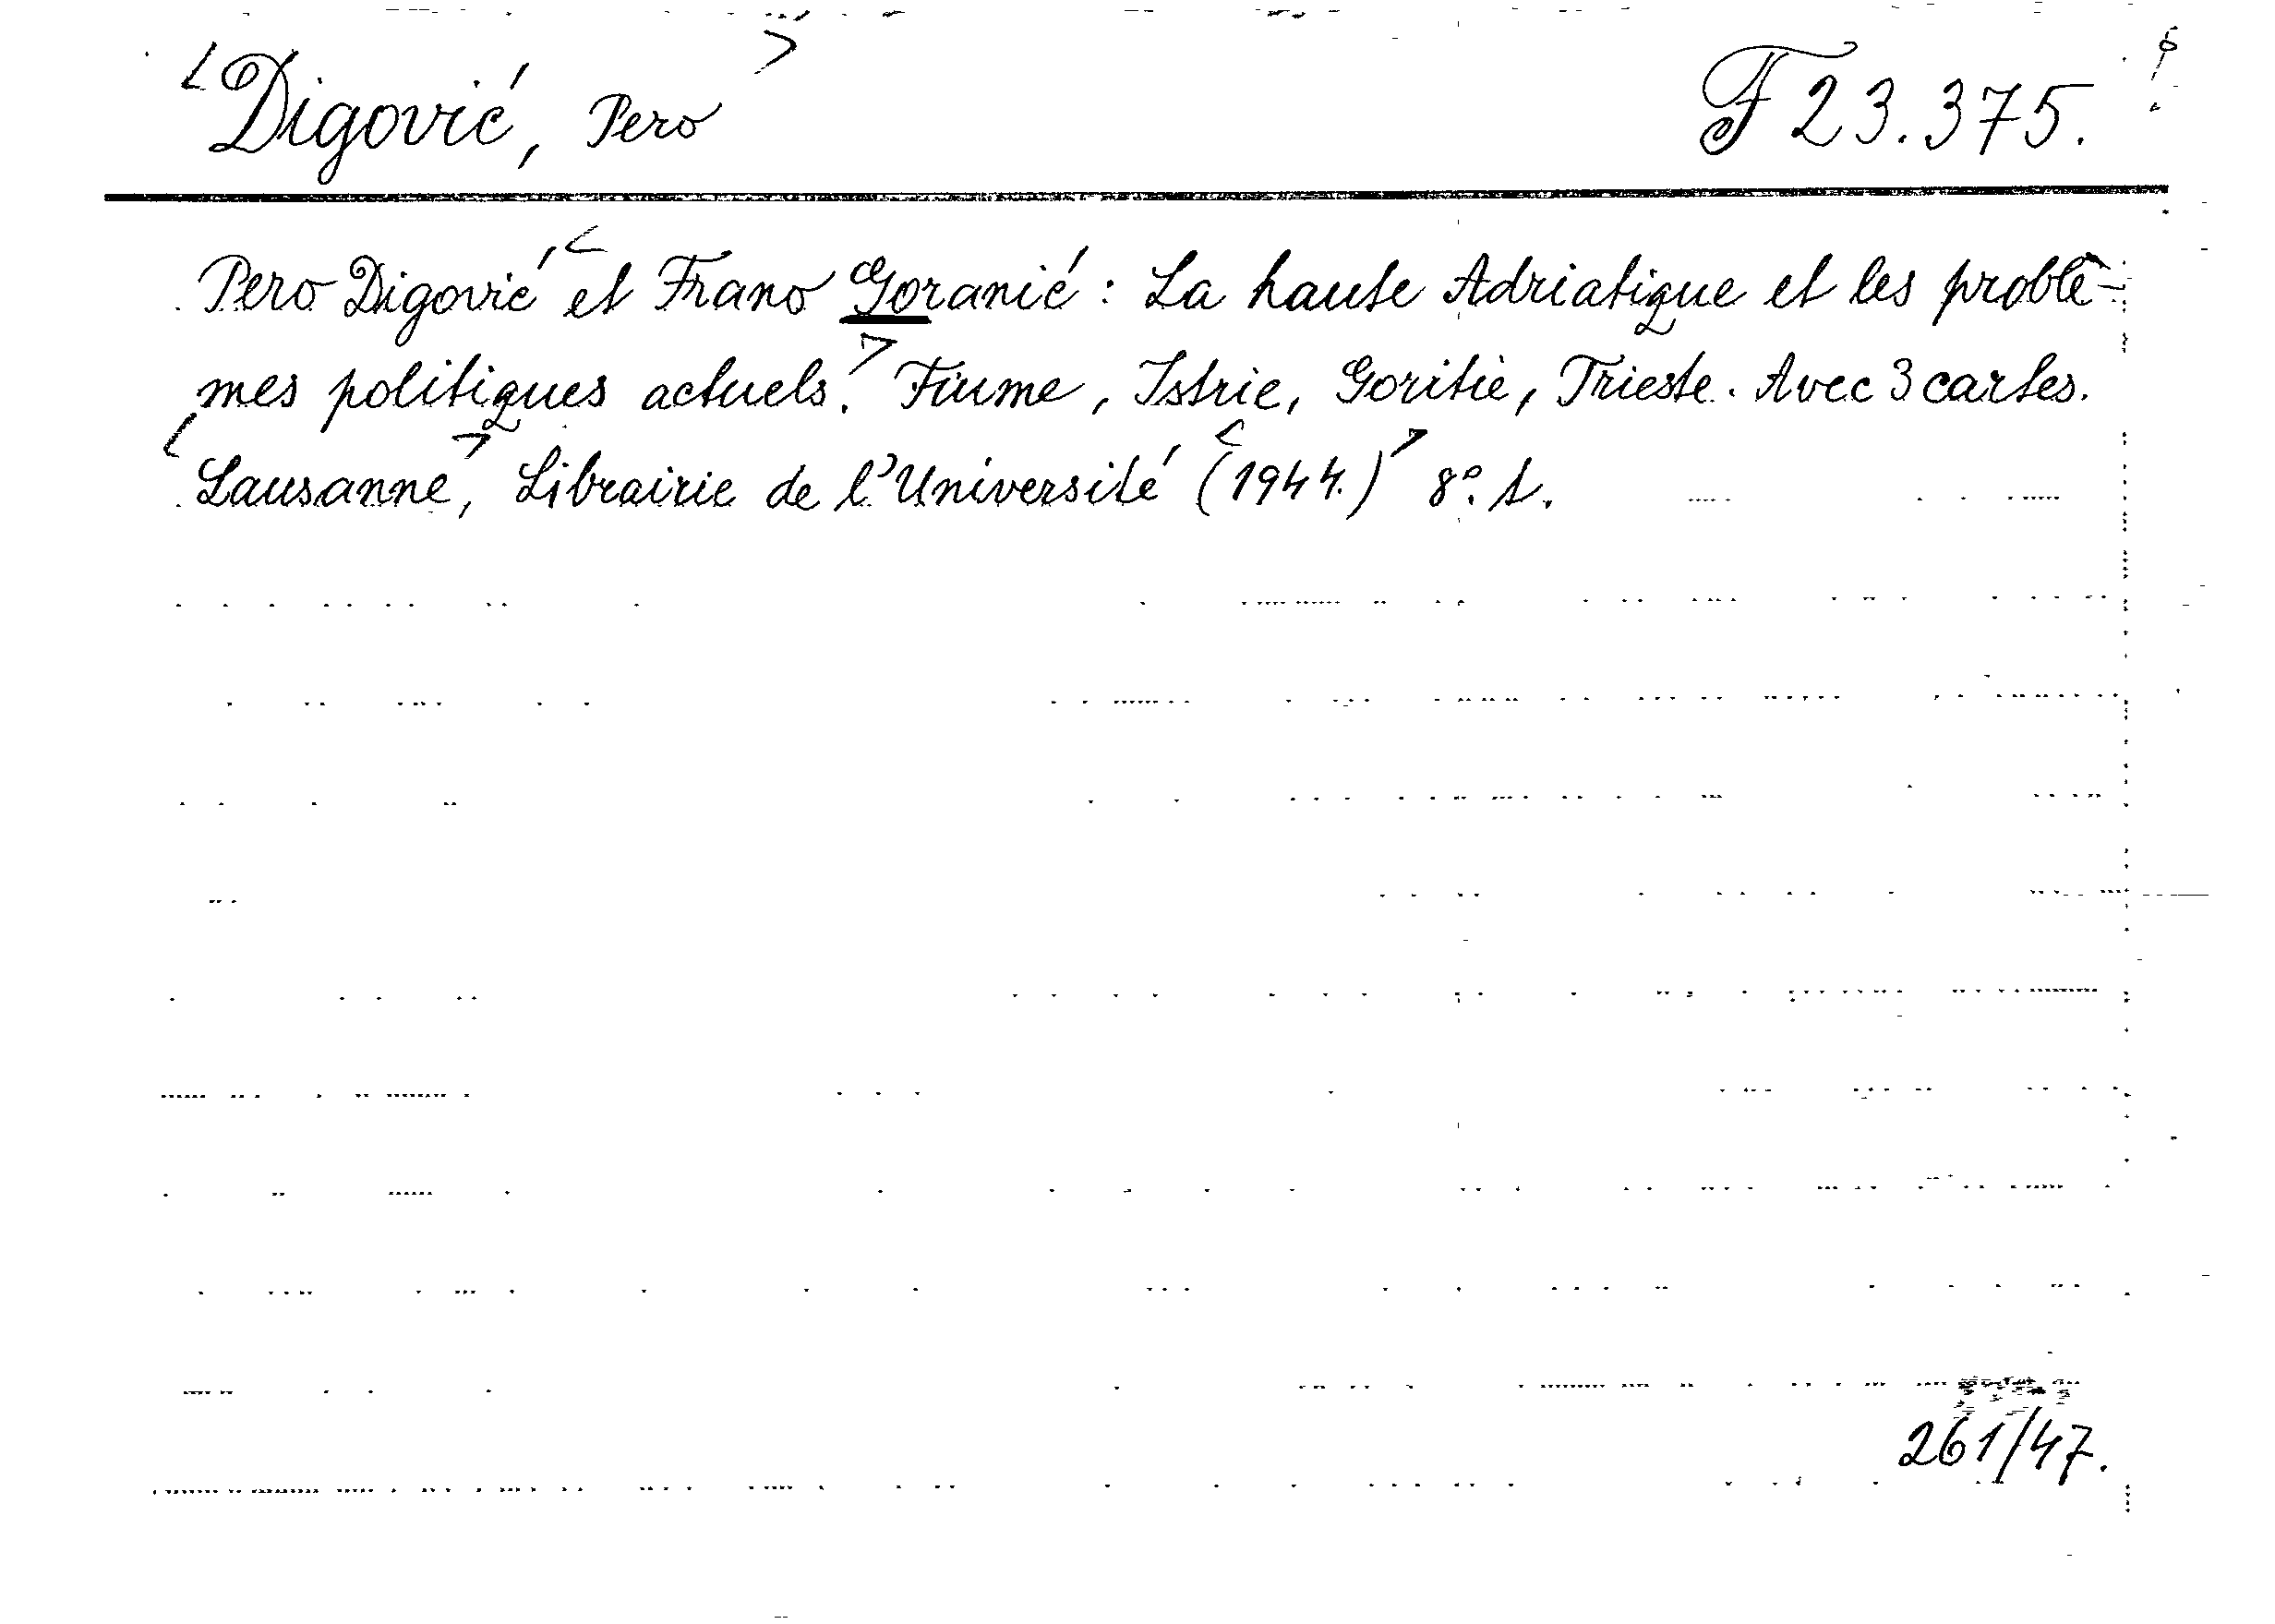 Digović, Pero F 23.375.
Pero Digović et Frano Goranić: La haute Adriatique et les problè-
mes politiques actuels. Fiume, Istrie, Goritië, Trieste. Avec 3 cartes.
Lausanne, Librairie de l'Université (1944.) 8°. A.
261/47.